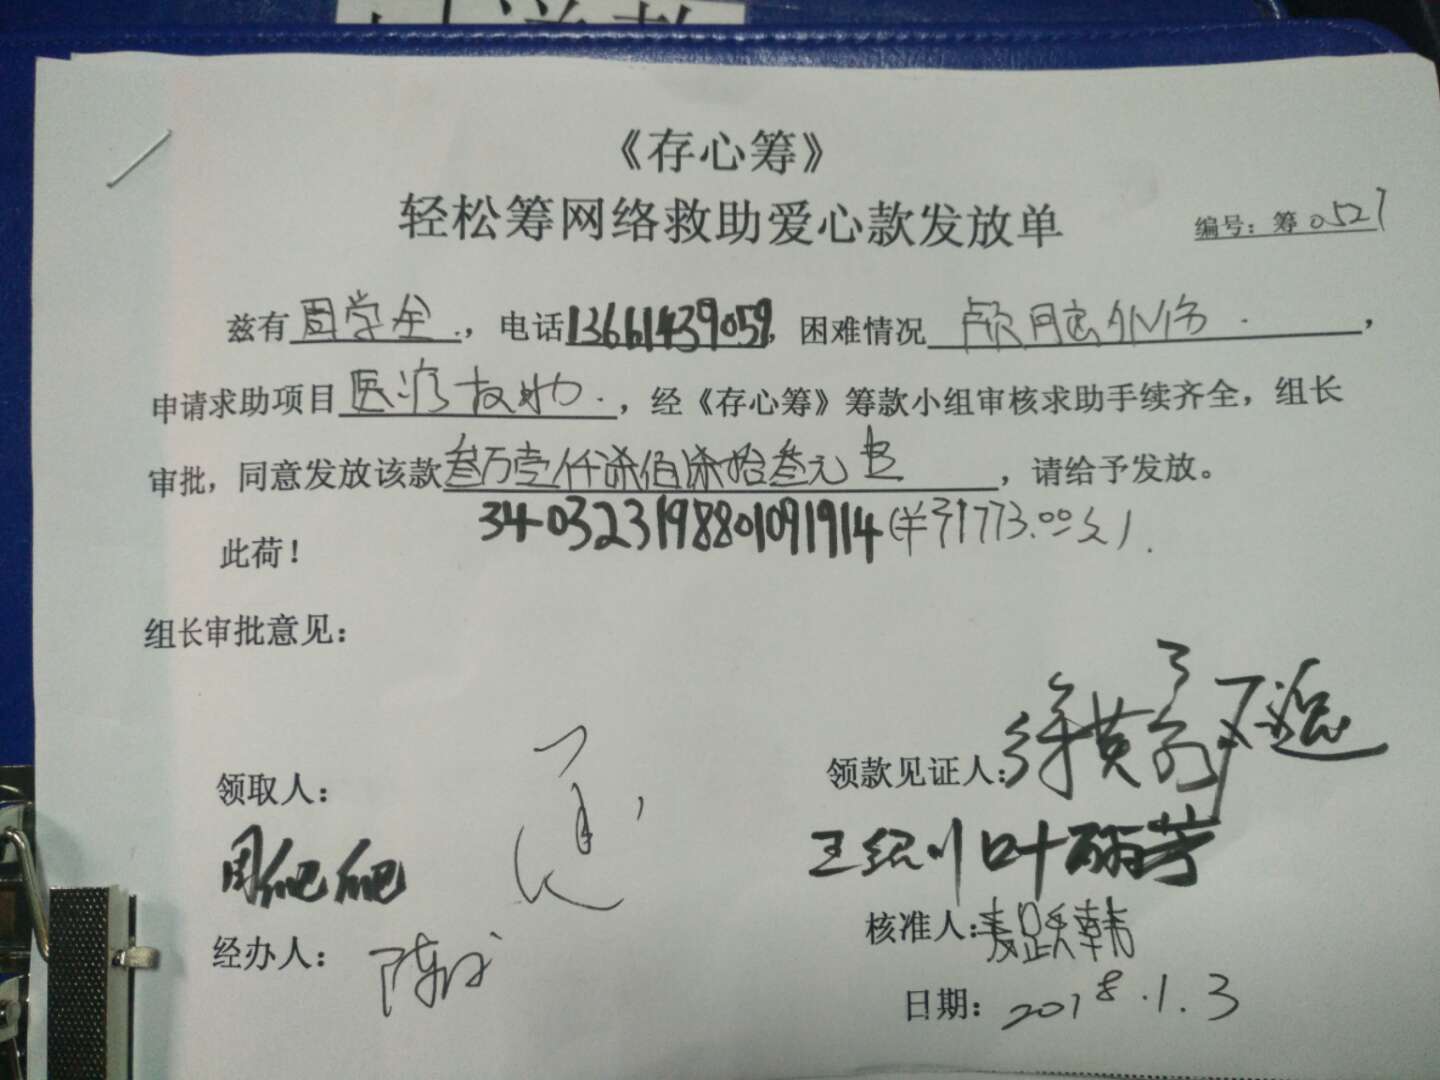 《存心筹》
轻松筹网络救助爱心款发放单
编号：筹0527
兹有周学全，电话13661439059，困难情况颅脑外伤，
申请求助项目医疗救助，经《存心筹》筹款小组审核求助手续齐全，组长
审批，同意发放该款叁万壹仟柒佰柒拾叁元，请给予发放。
340323198801091914（¥31773.00元）
此荷！
组长审批意见：
领取人：
领款见证人：
周爬爬
王绍川 叶丽芳
核准人：麦跃韩
经办人：
日期：2018.1.3